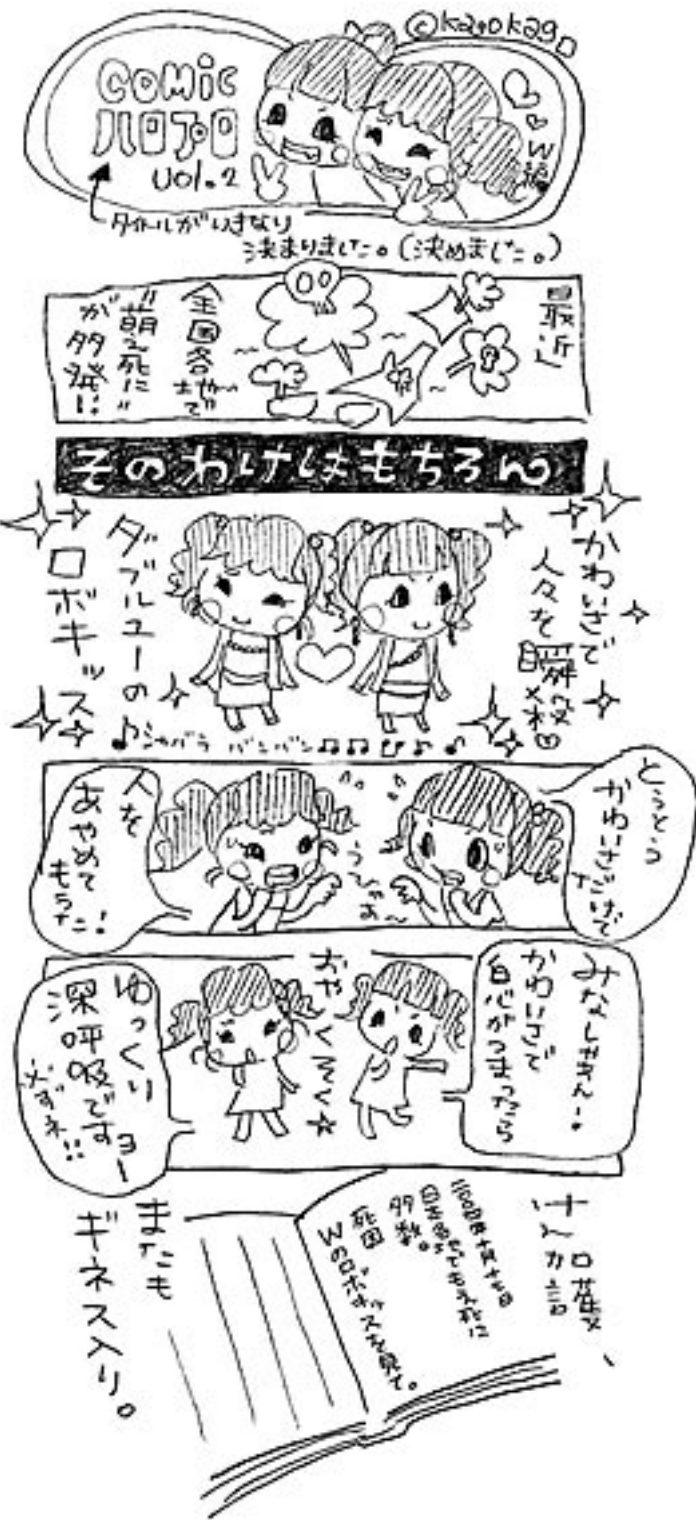 ©kagokago
COMiC
ハロプロ
Vol.2
W編
タイトルがいきなり
決まりました。(決めました。)
最近
全国各地で
"萌え死に"
が多発!!
そのわけはもちろん
かわいさで
人々を瞬殺♡
ダブルユーの
ロボキッス
♪シャバラ バンバン♫♫♫♪♪
とうとう
かわいさだけで
うひゃあ～
人を
あやめて
もうた!
みなしゃまん!
かわいさで
息がつまったら
おやくそく☆
ゆっくり ヨー
深呼吸です
必ずネ!!
多数。
死因
Wのロボキッスを見て。
またも
ギネス入り。